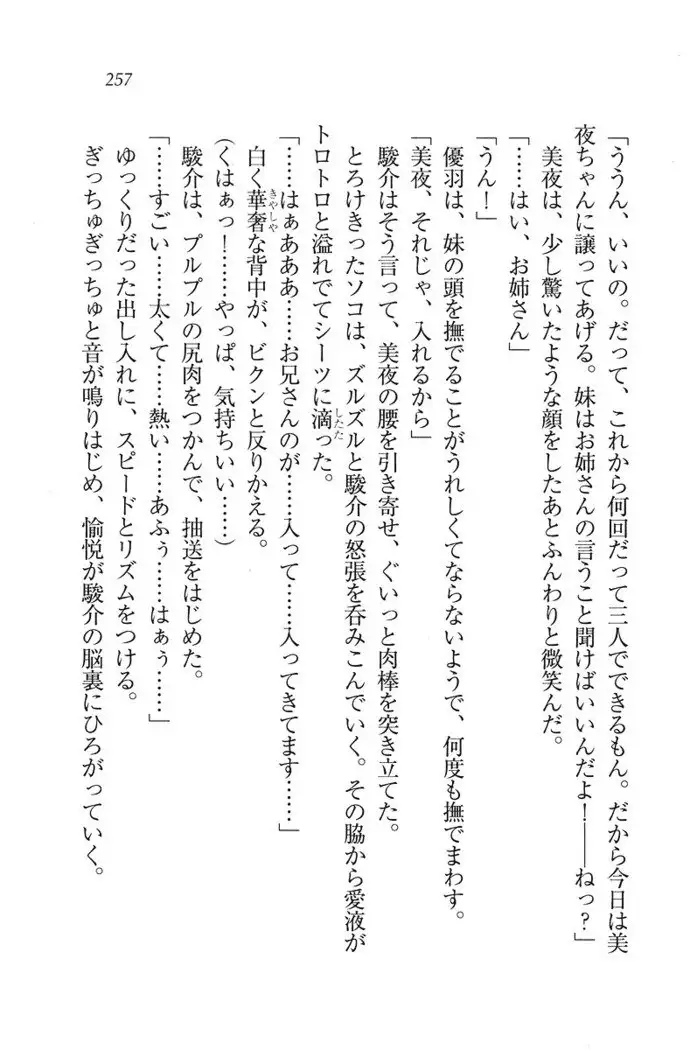 257
「ううん、いいの。だって、これから何回だって三人でできるもん。だから今日は美
夜ちゃんに譲ってあげる。妹はお姉さんの言うこと聞けばいいんだよ！――ねっ？」
美夜は、少し驚いたような顔をしたあとふんわりと微笑んだ。
「……はい、お姉さん」
「うん！」
優羽は、妹の頭を撫でることがうれしくてならないようで、何度も撫でまわす。
「美夜、それじゃ、入れるから」
駿介はそう言って、美夜の腰を引き寄せ、ぐいっと肉棒を突き立てた。
とろけきったソコは、ズルズルと駿介の怒張を呑みこんでいく。その脇から愛液が
トロトロと溢れでてシーツに滴った。
「……はぁあああ……お兄さんのが……入って……入ってきてます……」
白く華奢な背中が、ビクンと反りかえる。
（くはぁっ！……やっぱ、気持ちいい……）
駿介は、プルプルの尻肉をつかんで、抽送をはじめた。
「……すごい……太くて……熱い……あふぅ……はぁぅ……」
ゆっくりだった出し入れに、スピードとリズムをつける。
ぎっちゅぎっちゅと音が鳴りはじめ、愉悦が駿介の脳裏にひろがっていく。